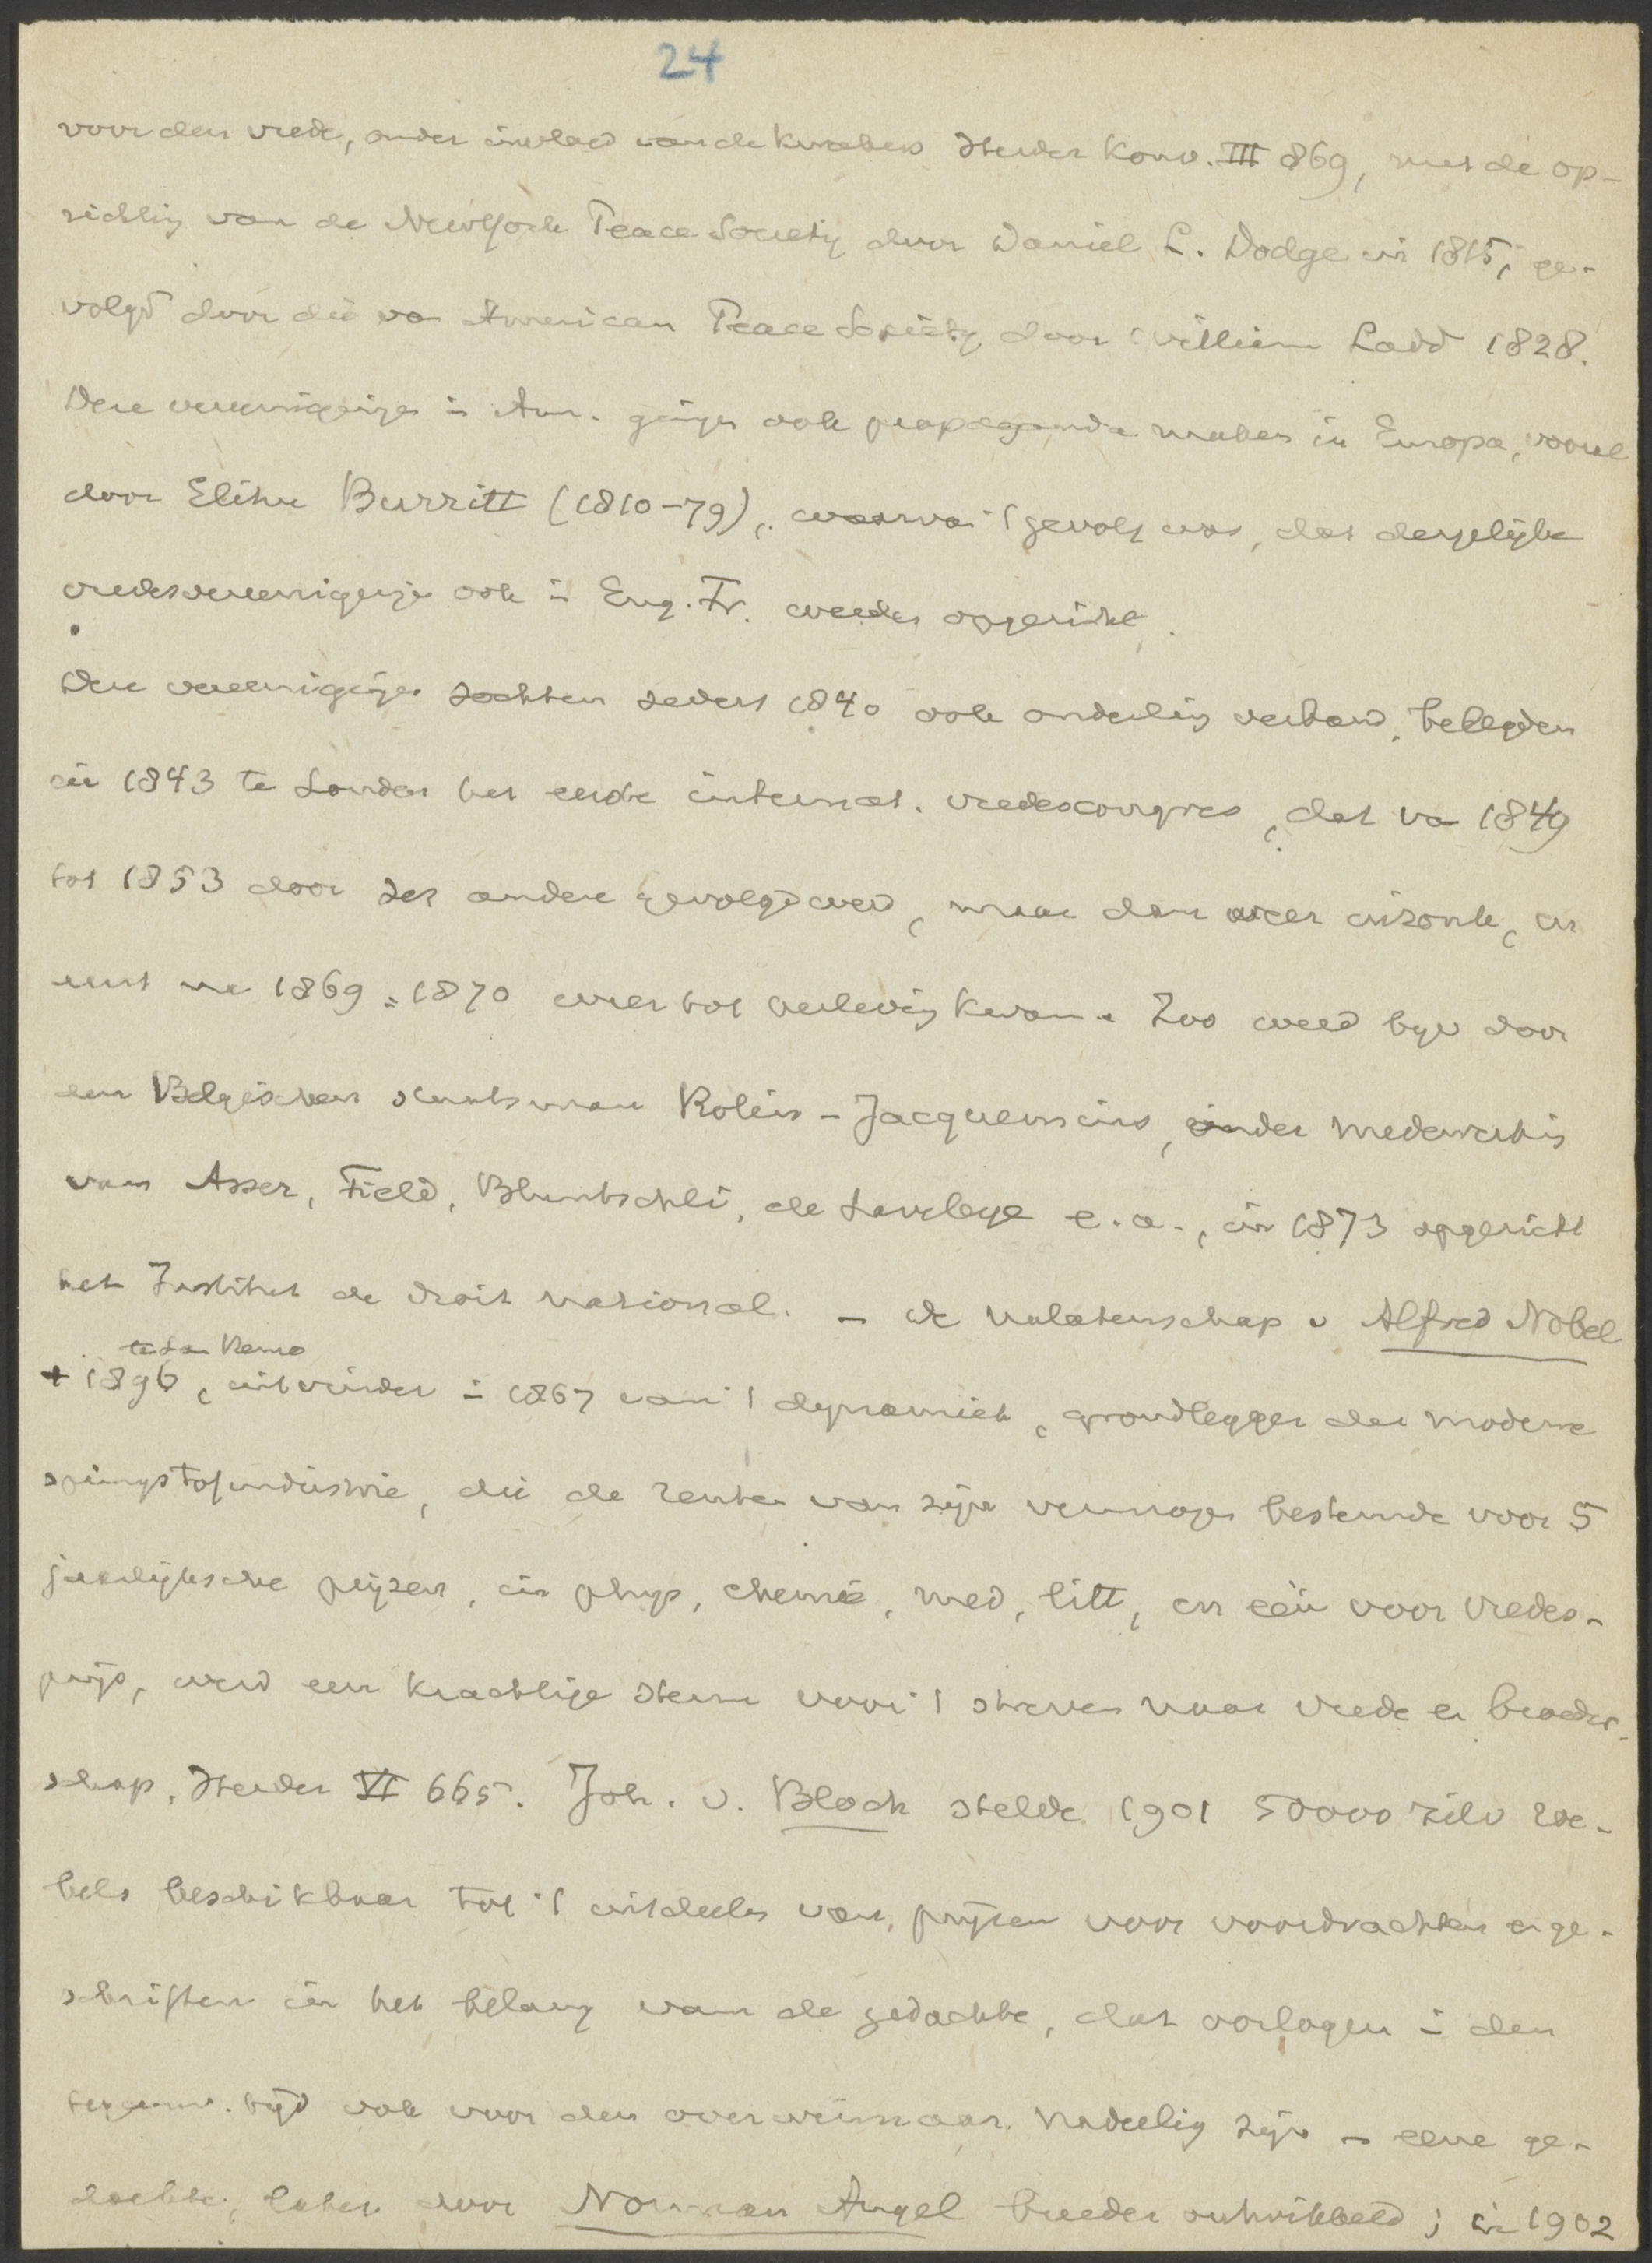 24
voor den vrede, onder invloed van de Kwakers Herder Konv. III 869, met de op-
richting van de NewYork Peace Society door Daniel L. Dodge in 1815, ge-
volgd door die va American Peace Society door William Ladd 1828.
Deze vereenigingen i Am. gingen ook propaganda maken in Europa, vooral
door Elihu Burritt (1810-79), waarva 't gevolg was, dat dergelijke
vredesvereenigingen ook i Eng. Fr. werden opgericht.
Deze vereenigingen zochten sedert 1840 ook onderling verband, belegden
in 1843 te Londen het eerste internat. vredescongres, dat va 1849
tot 1853 door zes andere gevolgd werd, maar dan weer inzonk, en
eerst na 1869 = 1870 weer tot herleving kwam. Zoo werd bijv door
den Belgischen staatsman Rolin-Jacquemins, onder medewerking
van Asser, Field, Bluntschli, de Laveleye e.a., in 1873 opgericht
het Institut de droit national. - de nalatenschap v Alfred Nobel
te San Remo
+ 1896, uitvinder i 1867 van 't dynamiet, grondlegger der moderne
springstofindustrie, die de renten van zijn vermogen bestemde voor 5
jaarlijksche prijzen, in phys, chemie, med, litt, en één voor vredes-
prijs, werd een krachtige steun voor 't streven naar vrede en broeder-
schap, Herder VI 665. Joh. v. Bloch stelde 1901 50000 zilv roe-
bels beschikbaar tot 't uitdeelen van prijzen voor voordrachten en ge-
schriften in het belang van de gedachte, dat oorlogen i den
tegenw. tijd ook voor den overwinnaar nadeelig zijn - eene ge-
dachte, later door Norman Angel breeder ontwikkeld; in 1902